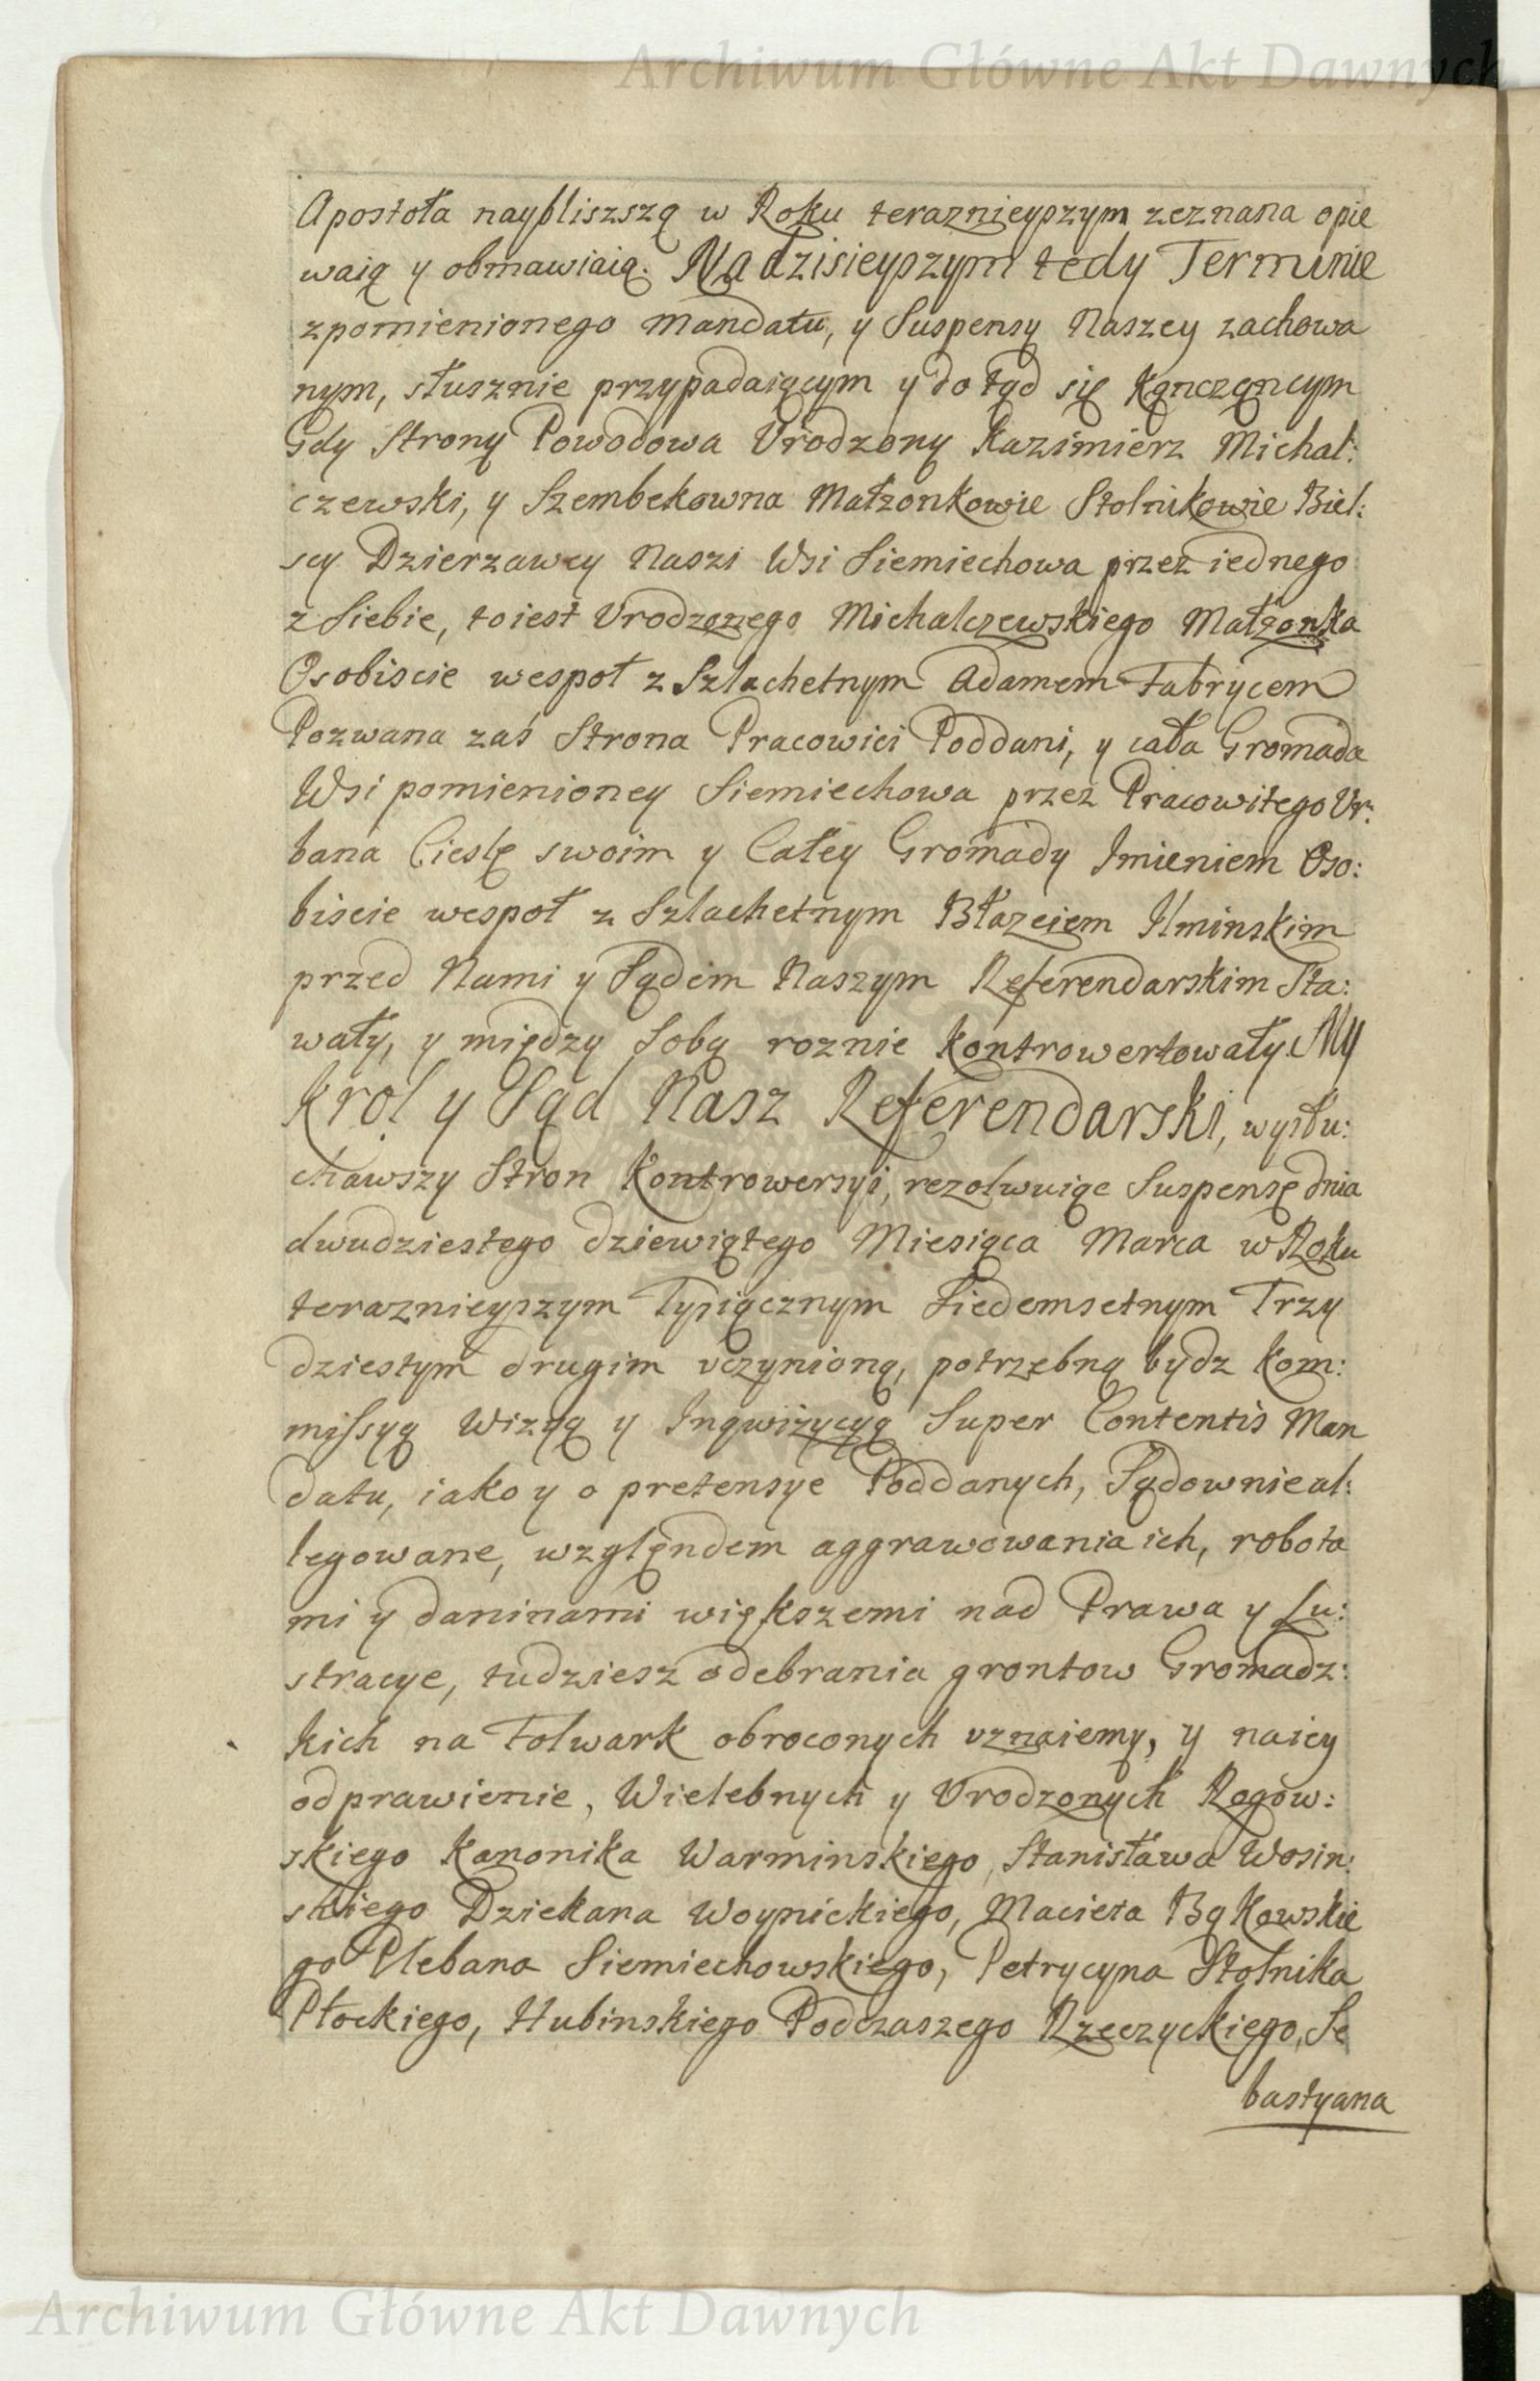 Archiwum Główne Akt Dawnych
Apostoła naybliszszą w Roku teraznieyszym zeznana opie
waią y obmawiaią. Na dzisieyszym tedy Terminie
zpomienionego Mandatu, y Suspensy Naszey zachowa
nym, słusznie przypadaiącym y do tąd się kączącym
Gdy Strony Powodowa Vrodzony Kazimierz Michal:
czewski, y Szembekowna Małzonkowie Stolnikowie Biel:
scy Dzierzawcy Naszi Wsi Siemiechowa przez iednego
z Siebie, to iest Vrodzonego Michalczewskiego Małzonka
Osobiscie wespoł z Szlachetnym Adamem Fabrycem
Pozwana zaś Strona Pracowici Poddani, y cała Gromada
Wsi pomienioney Siemiechowa przez Pracowitego Vr:
bana Cieslę swoim y Całey Gromady Imieniem Oso:
biscie wespoł z Szlachetnym Błazeiem Ilminskim
przed Nami y Sądem Naszym Referendarskim Sta:
wały, y między sobą roznie kontrowertowały. My
Krol y Sąd Nasz Referendarski, wysłu:
chawszy Stron Kontrowersyi, rezolwuiąc Suspensę dnia
dwudziestego dziewiątego Miesiąca Marca w Roku
teraznieyszym Tysiącznym Siedemsetnym Trzy
dziestym drugim vczynioną, potrzebną bydz Kom:
missyą Wizyą y Inqwizycyą Super Contentis Man
datu, iako y o pretensye Poddanych, Sądownie al:
legowane, względem aggrawowania ich, robota
mi y daninami większemi nad Prawa y Lu:
stracye, tudziesz odebrania grontow Gromadz:
kich na Folwark obroconych vznaiemy, y na iey
odprawienie, Wielebnych y Vrodzonych Rogow:
skiego Kanonika Warminskiego, Stanisława Wosin:
skiego Dziekana Woynickiego, Macieia Bąkowskie
go Plebana Siemiechowskiego, Petrycyna Stolnika
Płockiego, Hubinskiego Podczaszego Rzeczyckiego, Se
bastyana
Archiwum Główne Akt Dawnych